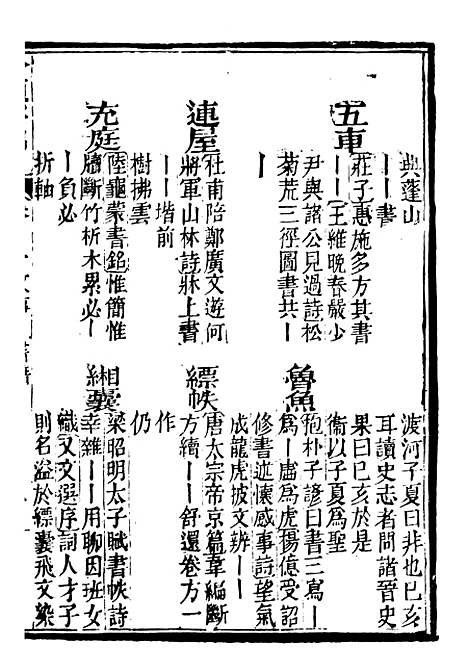 典蓬山
丨丨書
五車
莊子惠施多方其書
丨丨王維晚春嚴少
尹與諸公見過詩松
菊荒三徑圖書共丨
丨
連屋
杜甫陪鄭廣文遊何
將軍山林詩牀上書
丨丨堦前
樹拂雲
充庭
陸龜蒙書銘惟簡惟
牘斷竹析木累必丨
丨負必
折軸
渡河子夏曰非也巳亥
耳讀史志者問諸晉史
果曰巳亥於是
衞以子夏爲聖
魯魚
抱朴子諺曰書三寫丨
爲丨虛爲虎楊億受詔
修書述懷感事詩望氣
成龍虎披文辨丨丨
縹帙
唐太宗帝京篇韋編斷
方續丨丨舒還卷方一
作
仍
緗囊
梁昭明太子賦書帙詩
幸雜丨丨用聊因班女
織又文選序詞人才子
則名溢於縹囊飛文染